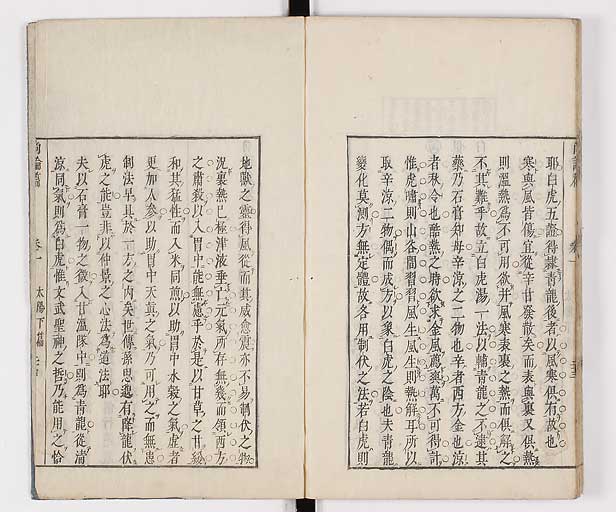 耶白虎五證得隸青龍後者以風寒俱有故也
寒與風皆傷宜從辛甘發散矣而表與裏又俱熱
則溫熱爲不可用欲并風寒表裏之熱而俱解之
不其難乎故立白虎湯一法以輔青龍之不逮其
藥乃石膏知母辛涼之二物也辛者西方金也涼
者秋令也酷熱之時欲求金風薦爽萬不可得計
惟虎嘯則山谷間習習風生風生則熱解耳所以
取辛涼二物偶而成方以象白虎之陰也夫青龍
變化莫測方無定體故各用制伏之法若白虎則
地獸之靈得風從而其威愈震亦不易制伏之物
況裏熱已極津液垂亡元氣所存無幾而領西方
之肅殺以入胃中能無慮乎於是以甘草之甘緩
和其猛性而入米同煎以助胃中水穀之氣虛者
更加人參以助胃中天真之氣乃可用之而無患
制法早具於一方之內矣世傳孫思邈有降龍伏
虎之能豈非以仲景之心法爲道法耶
夫以石膏一物之微入甘溫隊中則爲青龍從清
涼同氣則爲白虎惟文武聖神之哲乃能用之恰
尚論篇 卷一 太陽下篇